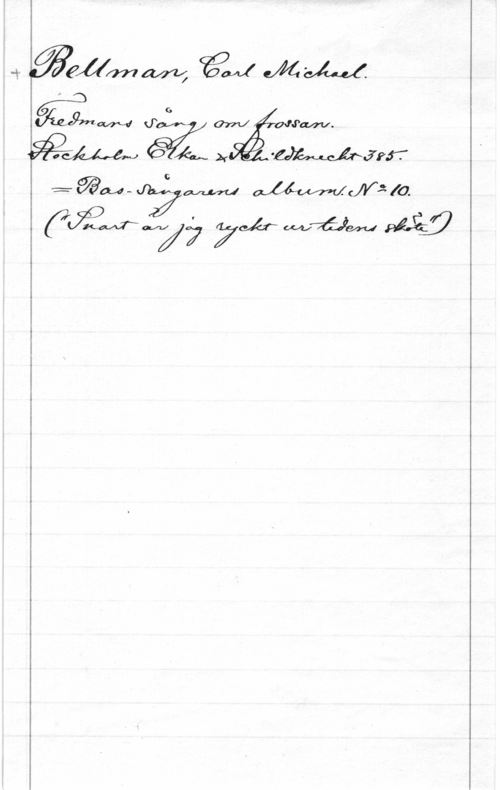 + Bellman, Carl Michael.
Fredmans sång om frossan.
Stockholm Elkan & Schildknecht 385.
= Bas-sångarens album. № 10.
("Snart är jag ryckt ur tidens sköte")